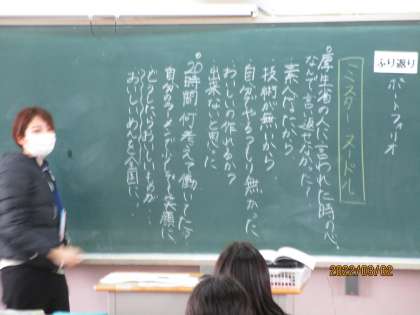 ふり返り
ポートフォリオ
ミスター ヌードル
。厚生省の人に言われた時の心
なんで言い返さなかった！
・素人だったから
・技術が無いから
自分がやるつもり無かった
・おいしいの作れるか？
・出来ないと思った
。20時間 何考えて働いてた？
自分のラーメンで少しでも笑顔に
どうしたらおいしいものが…
おいしいめんを全国に…
2022/03/02